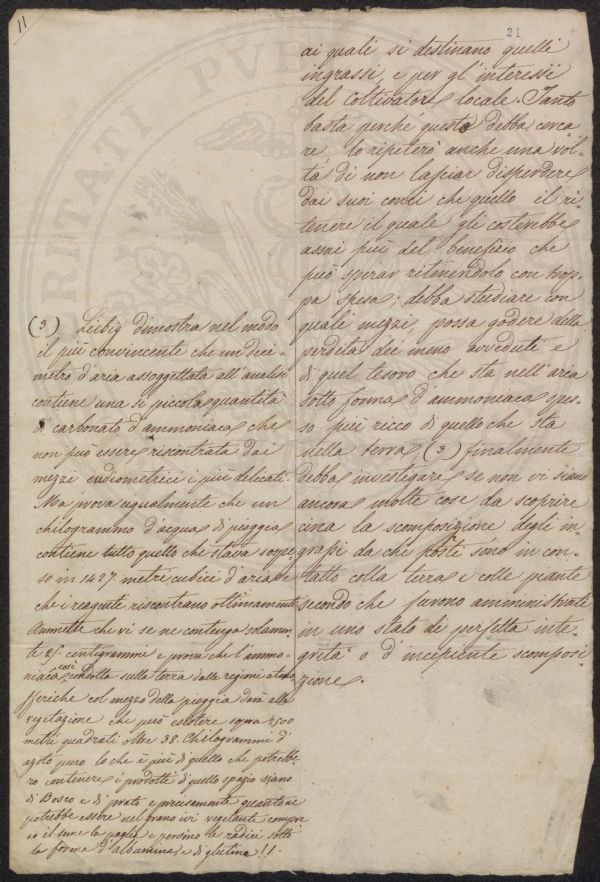 11
21
ai quali si destinano quelli
ingrassi, e per gl'interessi
del coltivatore locale. Tanto
basta perché questo debba cerca
re lo ripeterò anche una vol-
ta di non lasciar disperdere
dai suoi conci che quello il ri-
tenere il quale gli costerebbe
assai più del beneficio che
può sperar ritenendolo con trop-
pa spesa; debba studiare con
quali mezzi, possa godere della
perdita dei meno avveduti e
di quel tesoro che sta nell'aria
sotto forma d'ammoniaca spes-
so più ricco di quello che sta
nella terra (3) finalmente
debba investigare se non vi siano
ancora molte cose da scoprire
circa la scomposizione degli in-
grassi da che posti sono in con-
tatto colla terra e colle piante
secondo che furono amministrati
in uno stato di perfetta inte-
grità o d'incipiente scomposi-
zione.
(3) Liebig dimostra nel modo
il più convincente che un deci-
metro d'aria assoggettata all'analisi
contiene una sì piccola quantità
di carbonato d'ammoniaca che
non può essere riscontrata dai
mezzi eudiometrici i più delicati.
Ma prova ugualmente che un
chilogrammo d'acqua di pioggia
contiene tutto quello che stava sospe-
so in 1427 metri cubici d'aria e
che i reagenti riscontrano ottimamente
Ammette che vi se ne contenga solamen-
te 2/5 centigrammi e prova che l'ammo-
niaca così condotta sulla terra dalle regioni atmo
sferiche col mezzo della pioggia darà alla
vegetazione che può esistere sopra 2500
metri quadrati oltre 38 Chilogrammi d'
azoto puro lo che è più di quello che potrebbe
ro contenere i prodotti di quello spazio siano
di Bosco e di prato e precisamente quanto ne
potrebbe essere nel grano ivi vegetante compre
so il seme la paglia e persino le radici sotto
la forma d'albumina e di glutine!!.